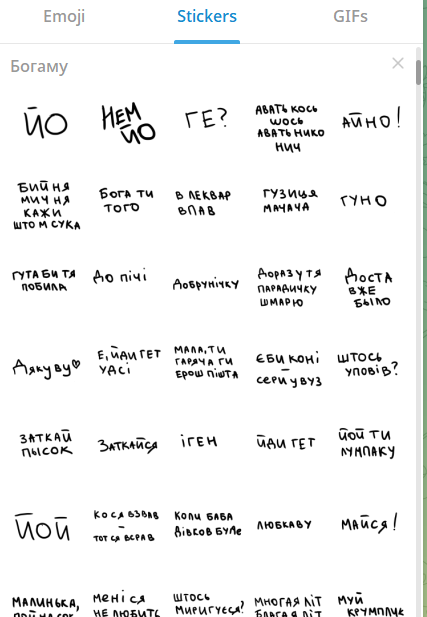 Emoji
Stickers
GIFs
Богаму
ЙО
НЕМ
ЙО
ГЕ?
АВАТЬ КОСЬ
ШОСЬ
АВАТЬ НИКО
НИЧ
АЙНО!
БИЙ НЯ
МИЧ НЯ
КАЖИ
ШТО М СУКА
БОГА ТИ
ТОГО
В ЛЕКВАР
ВПАВ
ГУЗИЦЯ
МАЧАЧА
ГУНО
ГУТА БИ ТЯ
ПОБИЛА
ДО ПІЧІ
ДОБРУНІЧКУ
ДОРАЗ У ТЯ
ПАРАДИЧКУ
ШМАРЮ
ДОСТА
ВЖЕ
БЫЛО
ДЯКУВУ
Е, ЙДИ ГЕТ
УДСІ
МАЛА, ТИ
ГАРЯЧА ГИ
ЕРОШ ПІШТА
ЄБИ КОНІ
–
СЕРИ У ВУЗ
ШТОСЬ
УПОВІВ?
ЗАТКАЙ
ПЫСОК
ЗАТКАЙСЯ
ІГЕН
ЙДИ ГЕТ
ЙОЙ ТИ
ЛУНПАКУ
ЙОЙ
КО СЯ ВЗВАВ
–
ТОТ СЯ ВСРАВ
КОЛИ БАБА
ДІВКОВ БУЛЕ
ЛЮБКАВУ
МАЙСЯ!
МАЛИНЬКА,
МЕНІ СЯ
НЕ ЛЮБИТЬ
ШТОСЬ
МИРИГУЄСЯ?
МНОГАЯ ЛІТ
БЛАГАЯ ЛІТ
МУЙ
КРУМПЛИК